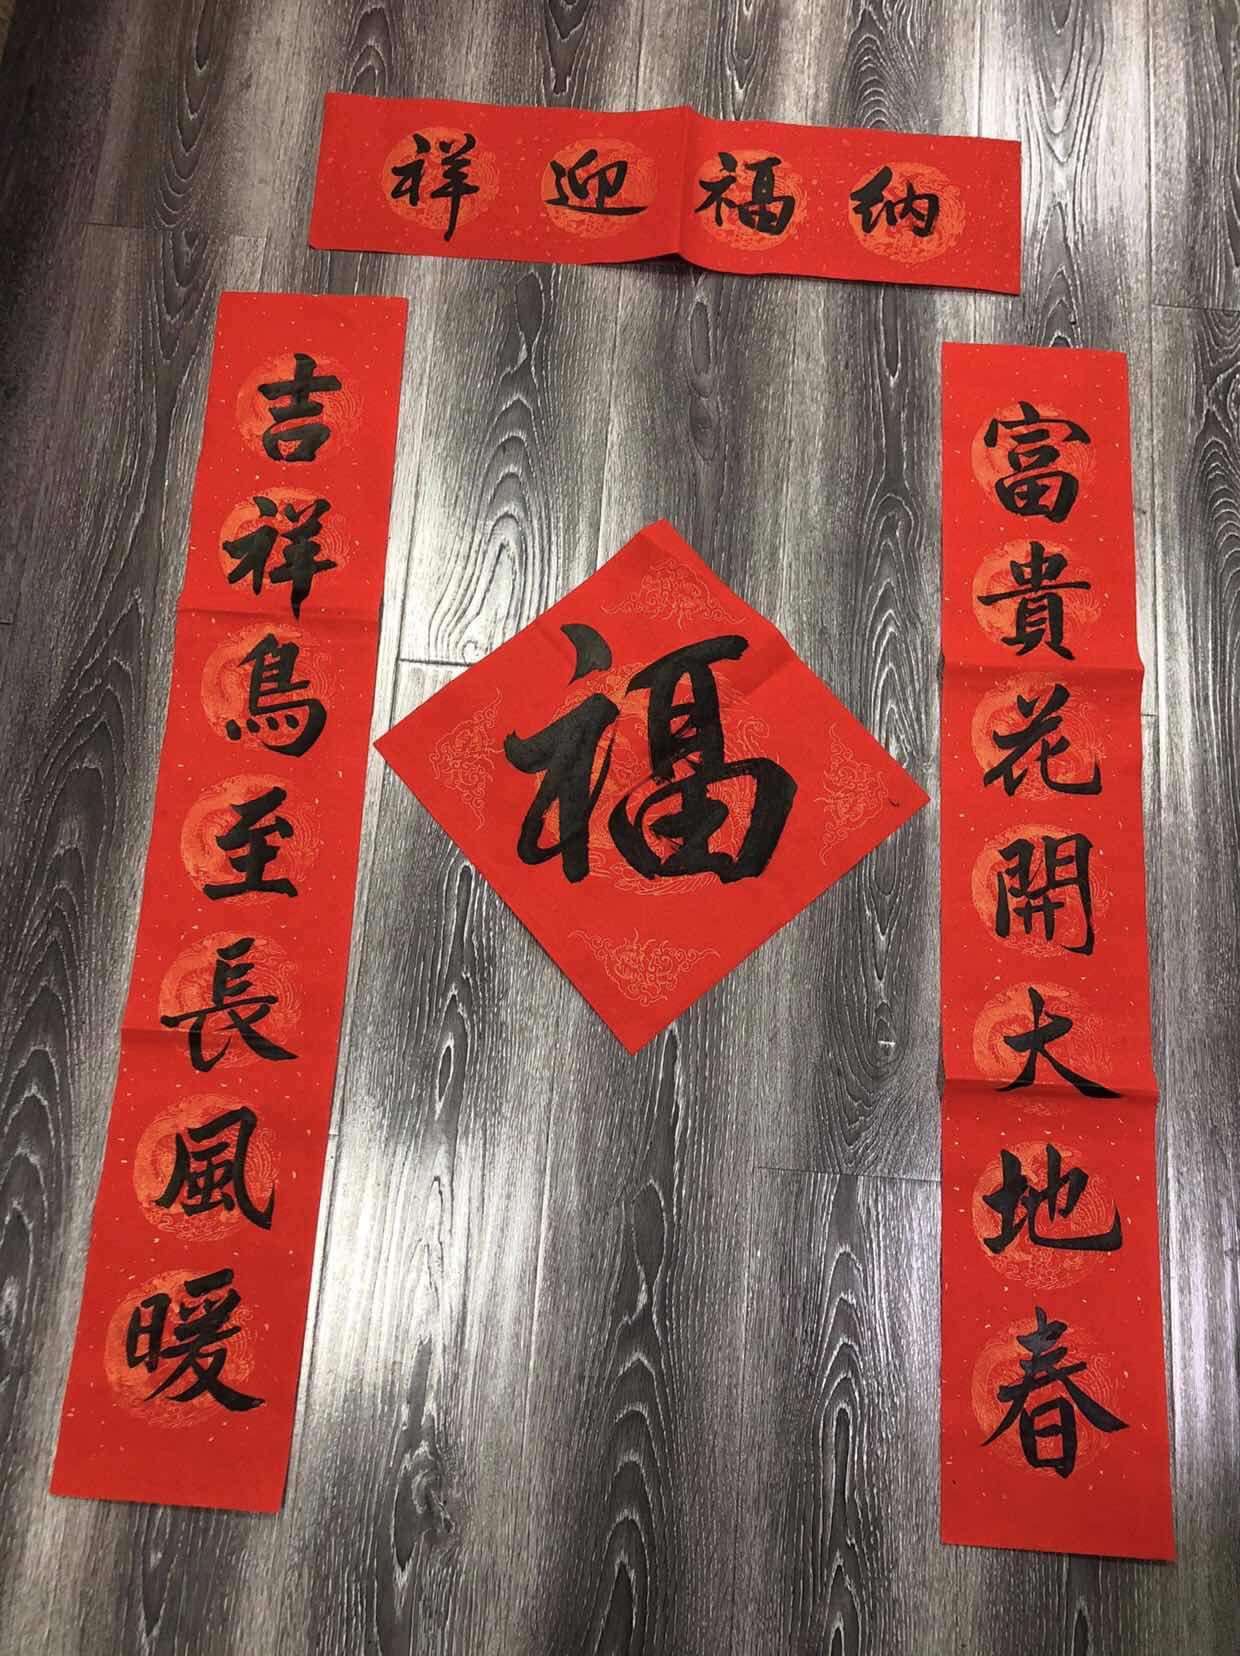 纳福迎祥
富貴花開大地春
吉祥鳥至長風暖
福